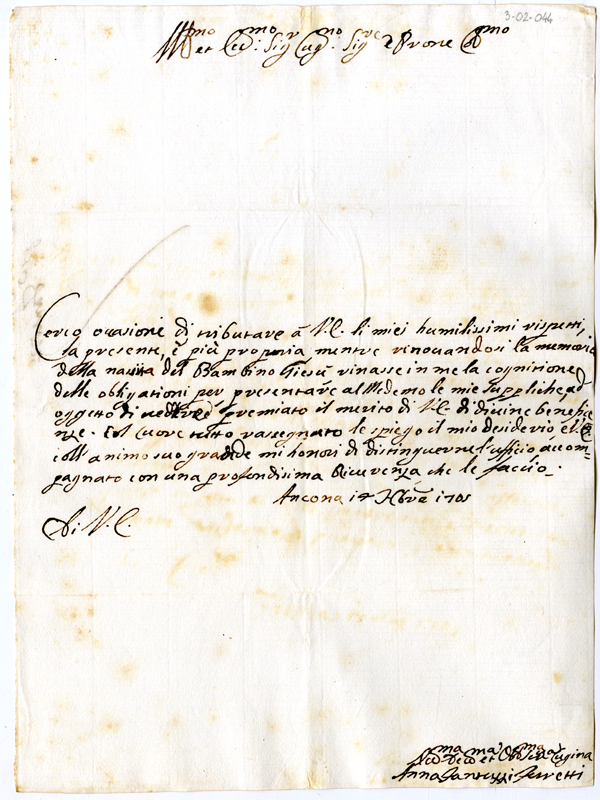 3-02-044
Ill.mo et Ecc.mo Sig.r Cug.no Sig.re e P.rone C.mo
Cerco occasione di tributare à V.E. li miei humilissimi rispetti,
la presente, è più propria mentre rinouandosi la memoria
della nasita del Bambino Giesù rinasse in me la cognitione
delle obligationi per presentare al Medemo le mie suppliche, ad
oggetto di uedere premiato il merito di V.E. di diuine benefice
nze. Col cuore tutto rassegnato le spiego il mio desiderio, e l'E.V.
coll'animo suo grande mi honori di distinguerne l'ufficio accom=
pagnato con una profondissima Riuerenza che le faccio.
Ancona Xbre 1705
Di V.E.
Aff.ma Deu.ma et Obl.ma Ser.a Cugina
Anna Ferretti